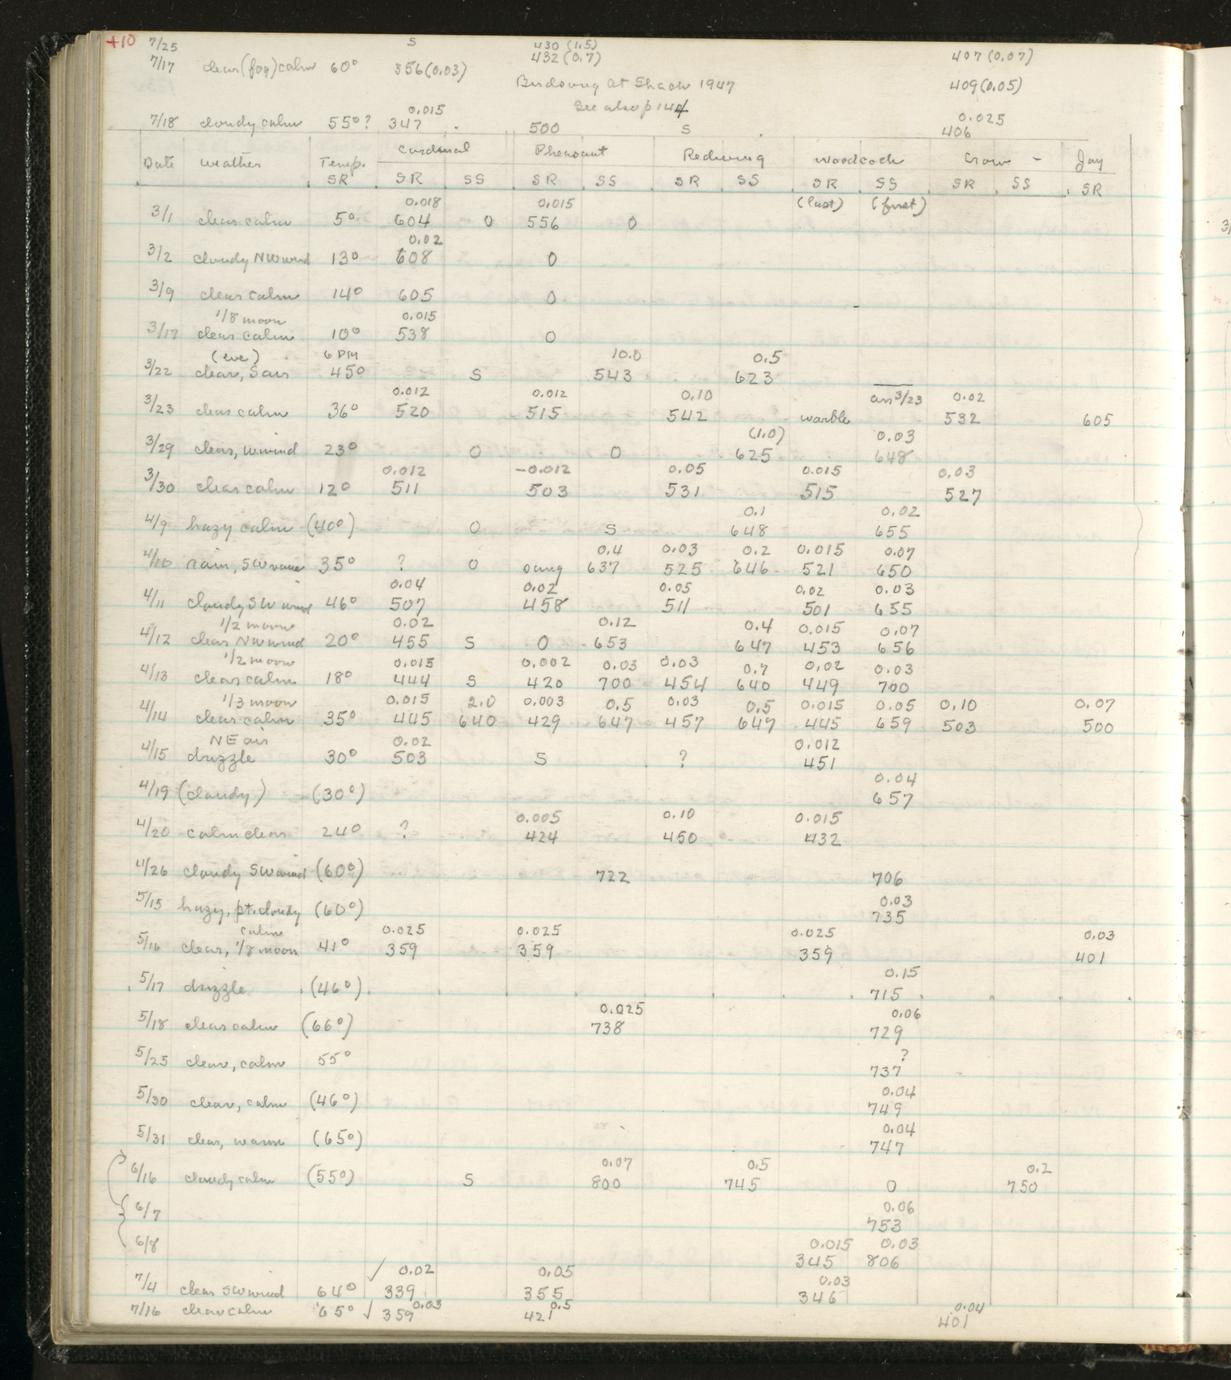 +10 7/25 S 430 (1.5)
7/17 clear (fog) calm 60° 356 (0.03) 432 (0.7) 407 (0.07)
Birdsong at Shack 1947 409 (0.05)
See also p 144
0.015 0.025
7/18 cloudy calm 55°? 347 500 S 406
Date weather Temp. Cardinal Pheasant Redwing Woodcock Crow - Jay
SR SR SS SR SS SR SS SR SS SR SS SR
0.018 0.015 (last) (first)
3/1 clear calm 5° 604 0 556 0
0.02
3/2 cloudy NW wind 13° 608 0
3/9 clear calm 14° 605 0
1/8 moon 0.015
3/17 clear calm 10° 538 0
(eve) 6 PM 10.0 0.5
3/22 clear, S air 45° S 543 623
0.012 0.012 0.10 arr 3/23 0.02
3/23 clear calm 36° 520 515 542 warble 532 605
(1.0) 0.03
3/29 clear, W wind 23° 0 0 625 648
0.012 -0.012 0.05 0.015 0.03
3/30 clear calm 12° 511 503 531 515 527
0.1 0.02
4/9 hazy calm (40°) 0 S 648 655
0.4 0.03 0.2 0.015 0.07
4/10 rain, SW 35° ? 0 637 525 646 521 650
0.04 0.02 0.05 0.02 0.03
4/11 cloudy SW wind 46° 507 458 511 501 655
1/2 moon 0.02 0.12 0.4 0.015 0.07
4/12 clear NW wind 20° 455 S 0 653 647 453 656
1/2 moon 0.015 0.002 0.03 0.03 0.7 0.02 0.03
4/13 clear calm 18° 444 S 420 700 454 640 449 700
1/3 moon 0.015 2.0 0.003 0.5 0.03 0.5 0.015 0.05 0.10 0.07
4/14 clear calm 35° 445 640 429 647 457 647 445 659 503 500
NE air 0.02 0.012
4/15 drizzle 30° 503 S ? 451
0.04
4/19 (cloudy) (30°) 657
0.005 0.10 0.015
4/20 calm clear 24° ? 424 450 432
4/26 cloudy SW wind (60°) 722 706
0.03
5/15 hazy, pt. cloudy (60°) 735
calm 0.025 0.025 0.025 0.03
5/16 clear, 1/8 moon 41° 359 359 359 401
0.15
5/17 drizzle (46°) 715
0.025 0.06
5/18 clear calm (66°) 738 729
?
5/25 clear, calm 55° 737
0.04
5/30 clear, calm (46°) 749
0.04
5/31 clear, warm (65°) 747
0.07 0.5 0.2
6/16 cloudy calm (55°) S 800 745 0 750
0.06
6/7 753
0.015 0.03
6/8 345 806
0.02 0.05 0.03
7/4 clear SW wind 64° ✓ 339 355 346
0.03 0.5 0.04
7/16 clear calm 65° ✓ 359 421 401
3/